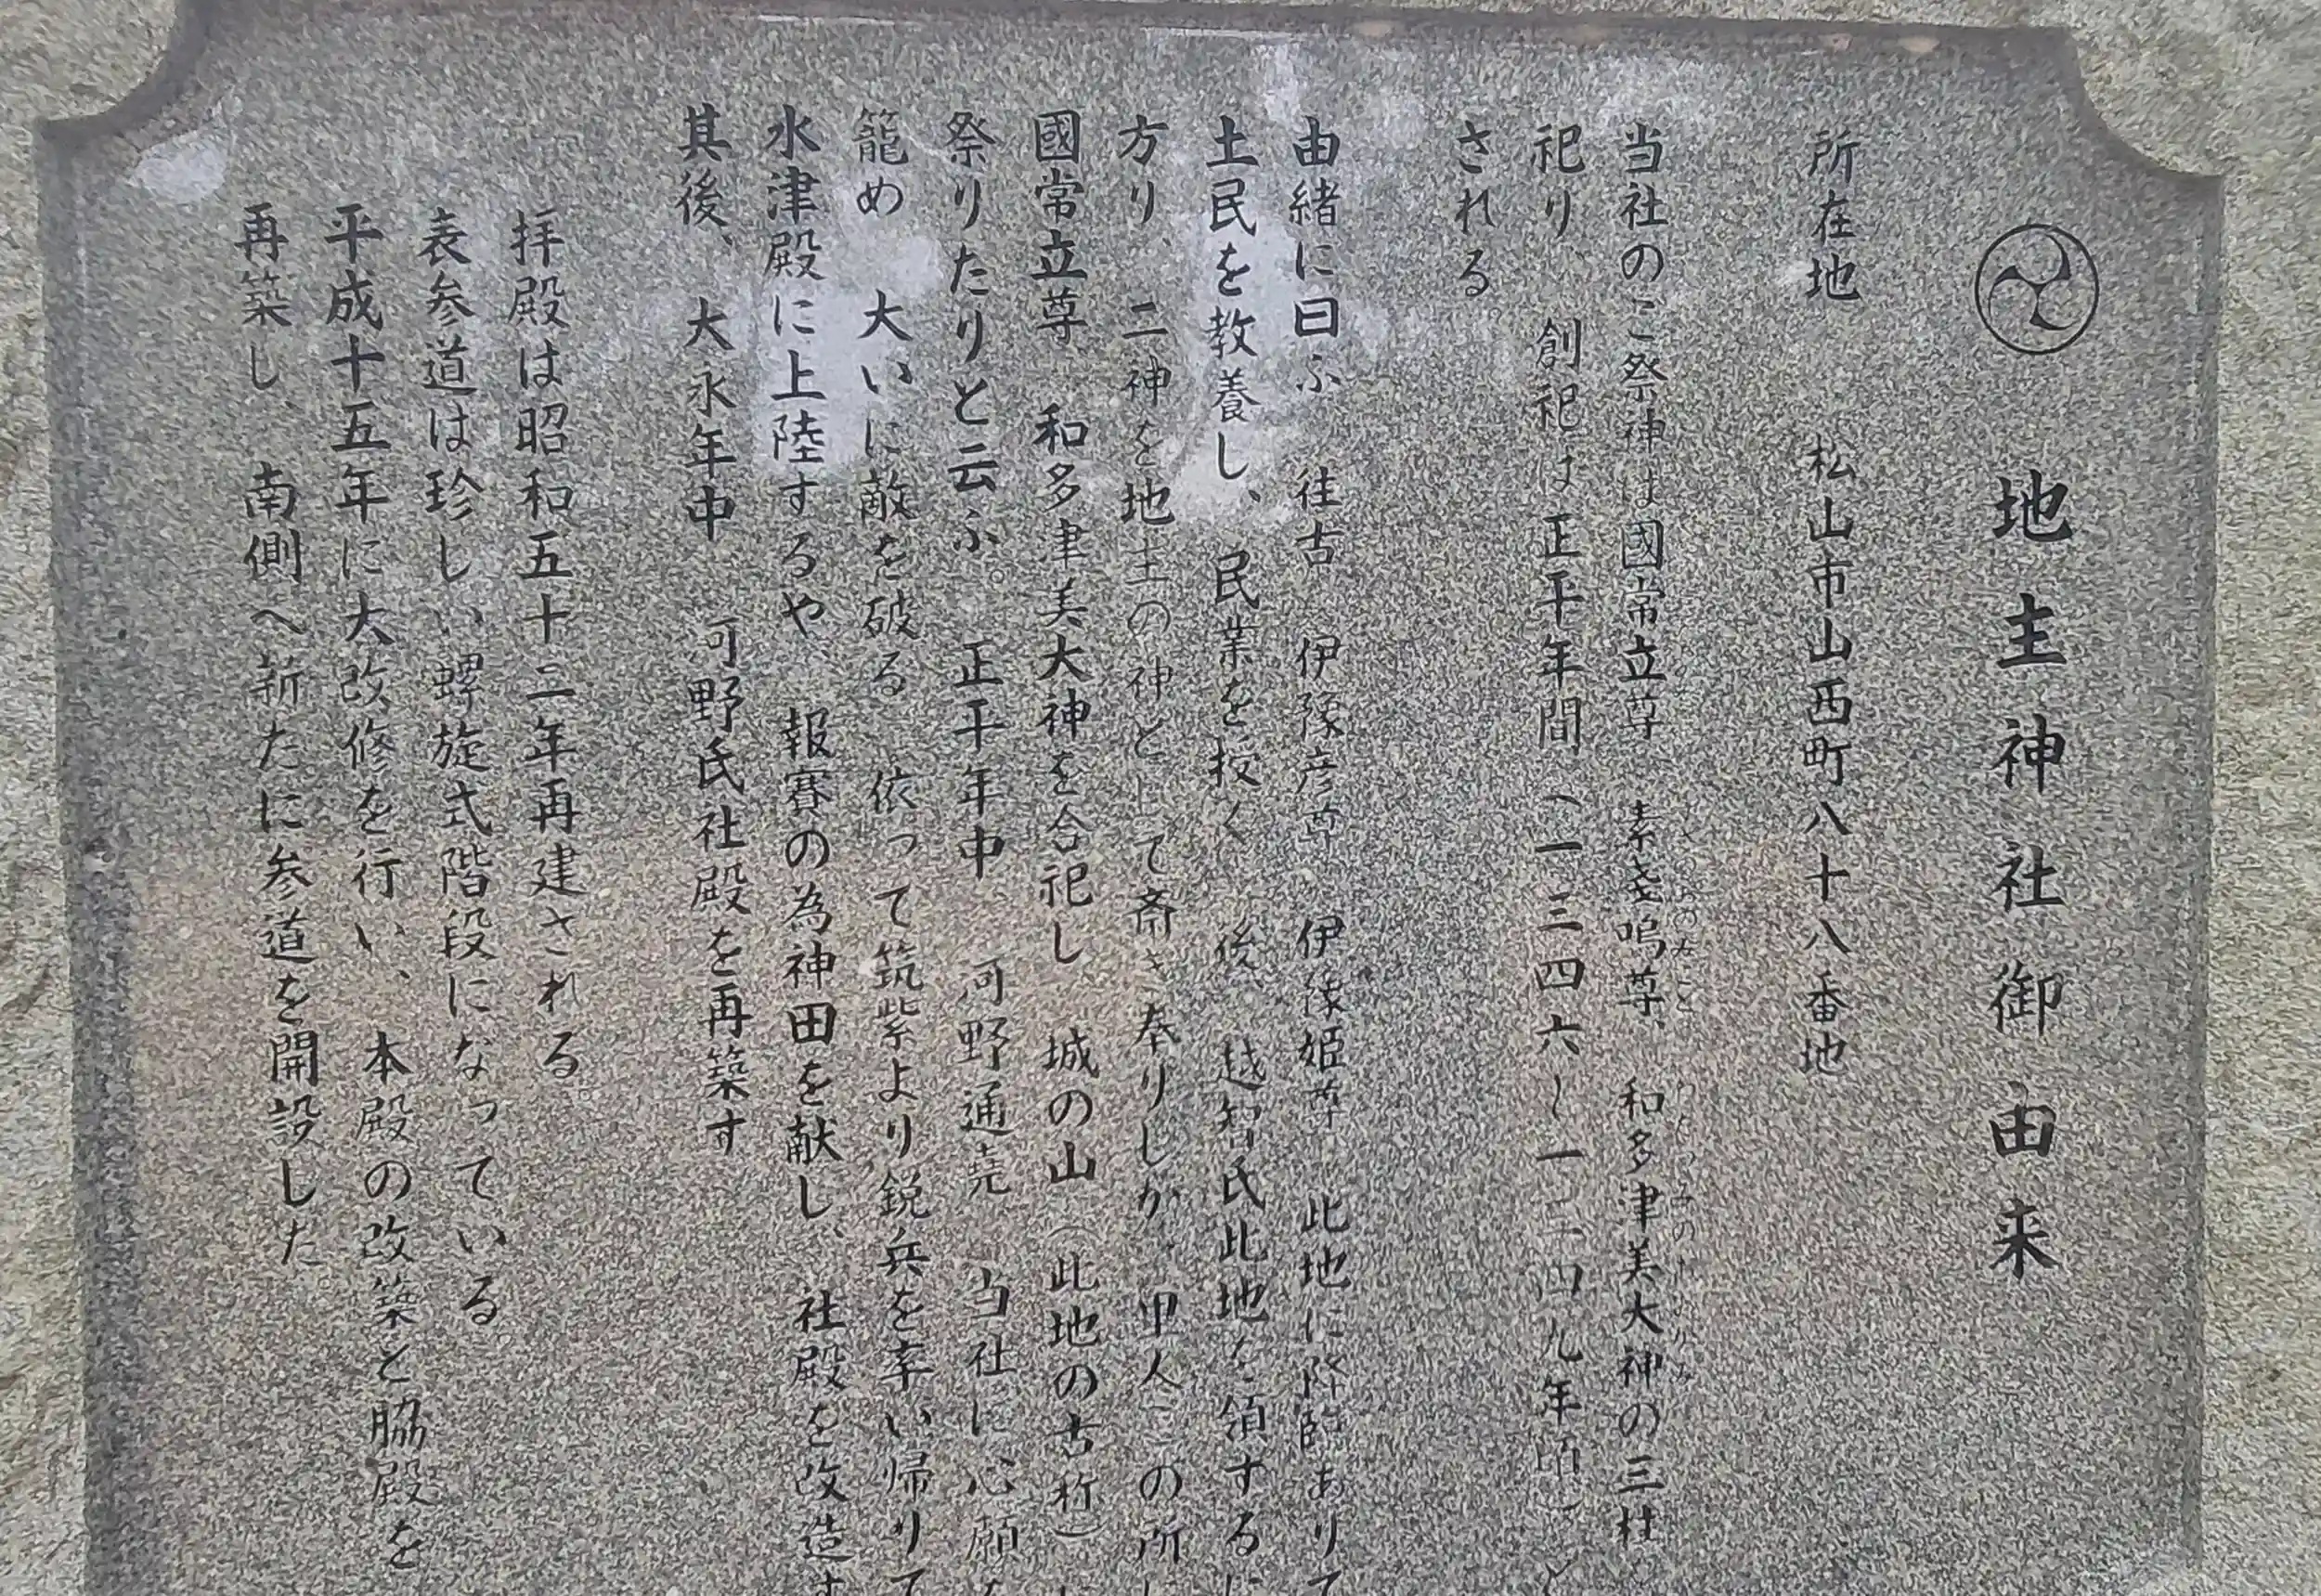 地主神社御由来
所在地 松山市山西町八十八番地
当社のご祭神は國常立尊 素戔嗚尊、和多津美大神の三柱
祀り、創祀は正平年間(一三四六~一三四九年頃)と
される
由緒に曰ふ 往古 伊豫彦尊 伊豫姫尊 此地に降臨ありて
土民を教養し、民業を授く 後、越智氏此地を領するに
方り、二神を地主の神として斎き奉りしが、里人この所に
國常立尊 和多津美大神を合祀し 城の山(此地の古称)に
祭りたりと云ふ。正平年中 河野通堯 当社に心願を
籠め 大いに敵を破る 依って筑紫より鋭兵を率い帰りて
水津殿に上陸するや 報賽の為神田を献し、社殿を改造す
其後、大永年中 河野氏社殿を再築す
拝殿は昭和五十二年再建される
表参道は珍しい螺旋式階段になっている
平成十五年に大改修を行い、本殿の改築と脇殿を
再築し 南側へ新たに参道を開設した。